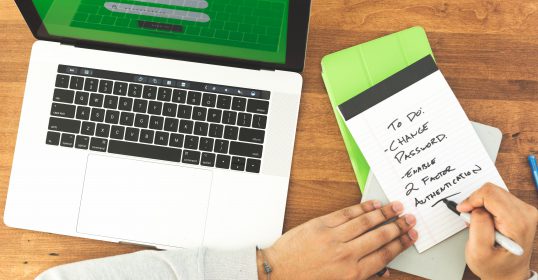 TO DO:
- CHANGE
PASSWORD.
- ENABLE
2 FACTOR
AUTHENTICATION